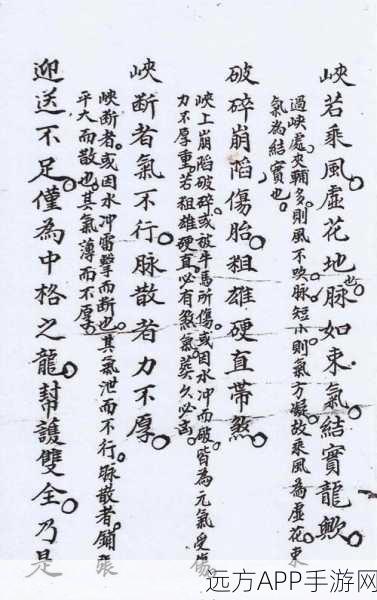 峽若乘風虛花地也。脉如束氣。結實龍歟。
過峽處夾輔多。則風不吹脉。短小則氣方凝。故乘風為虛花。束
氣為結實也。
破碎崩陷傷胎。粗雄硬直帶煞。
峽上崩陷破碎。或被牛馬所傷。或因水冲而破。皆為元氣受傷。
力不厚重。若粗雄硬直。必有煞氣。葬久必出。
峽断者氣不行。脉散者力不厚。
峽断者。或因水冲雷擊而断也。其氣泄而不行。脉散者鋪張
平大而散也。其氣薄而不厚。
迎送不足。僅為中格之龍。幫護雙全。乃是
远方APP手游网